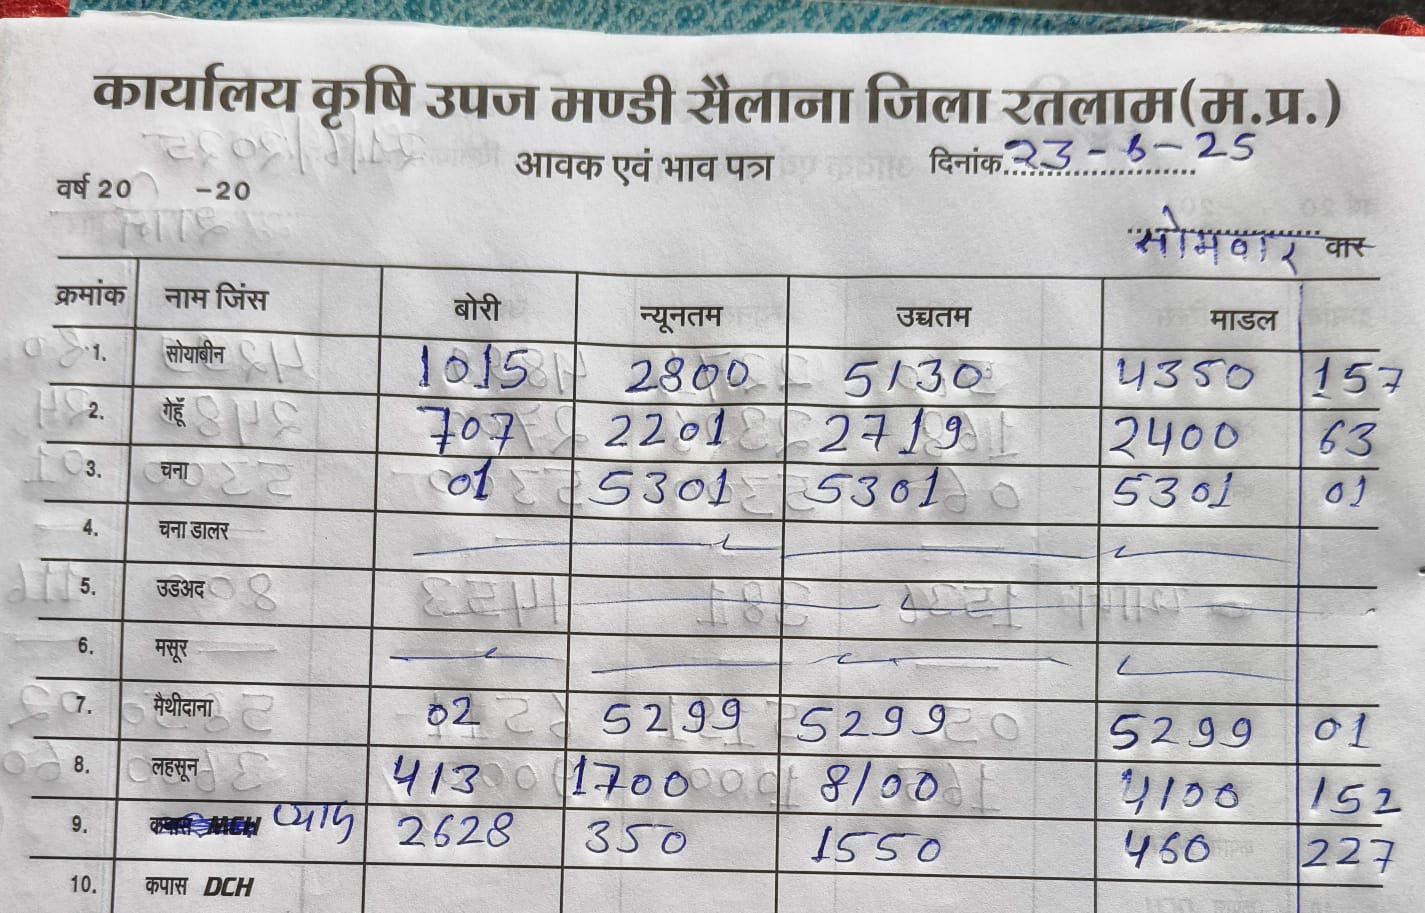 कार्यालय कृषि उपज मण्डी सैलाना जिला रतलाम(म.प्र.)
आवक एवं भाव पत्र
दिनांक 23-6-25
वर्ष 20 -20
सोमवार वार
क्रमांक नाम जिंस बोरी न्यूनतम उच्चतम माडल
1. सोयाबीन 1015 2800 5130 4350 157
2. गेहूँ 707 2201 2719 2400 63
3. चना 01 5301 5301 5301 01
4. चना डालर
5. उडअद
6. मसूर
7. मैथीदाना 02 5299 5299 5299 01
8. लहसून 413 1700 8100 4100 152
9. प्याज 2628 350 1550 460 227
10. कपास DCH